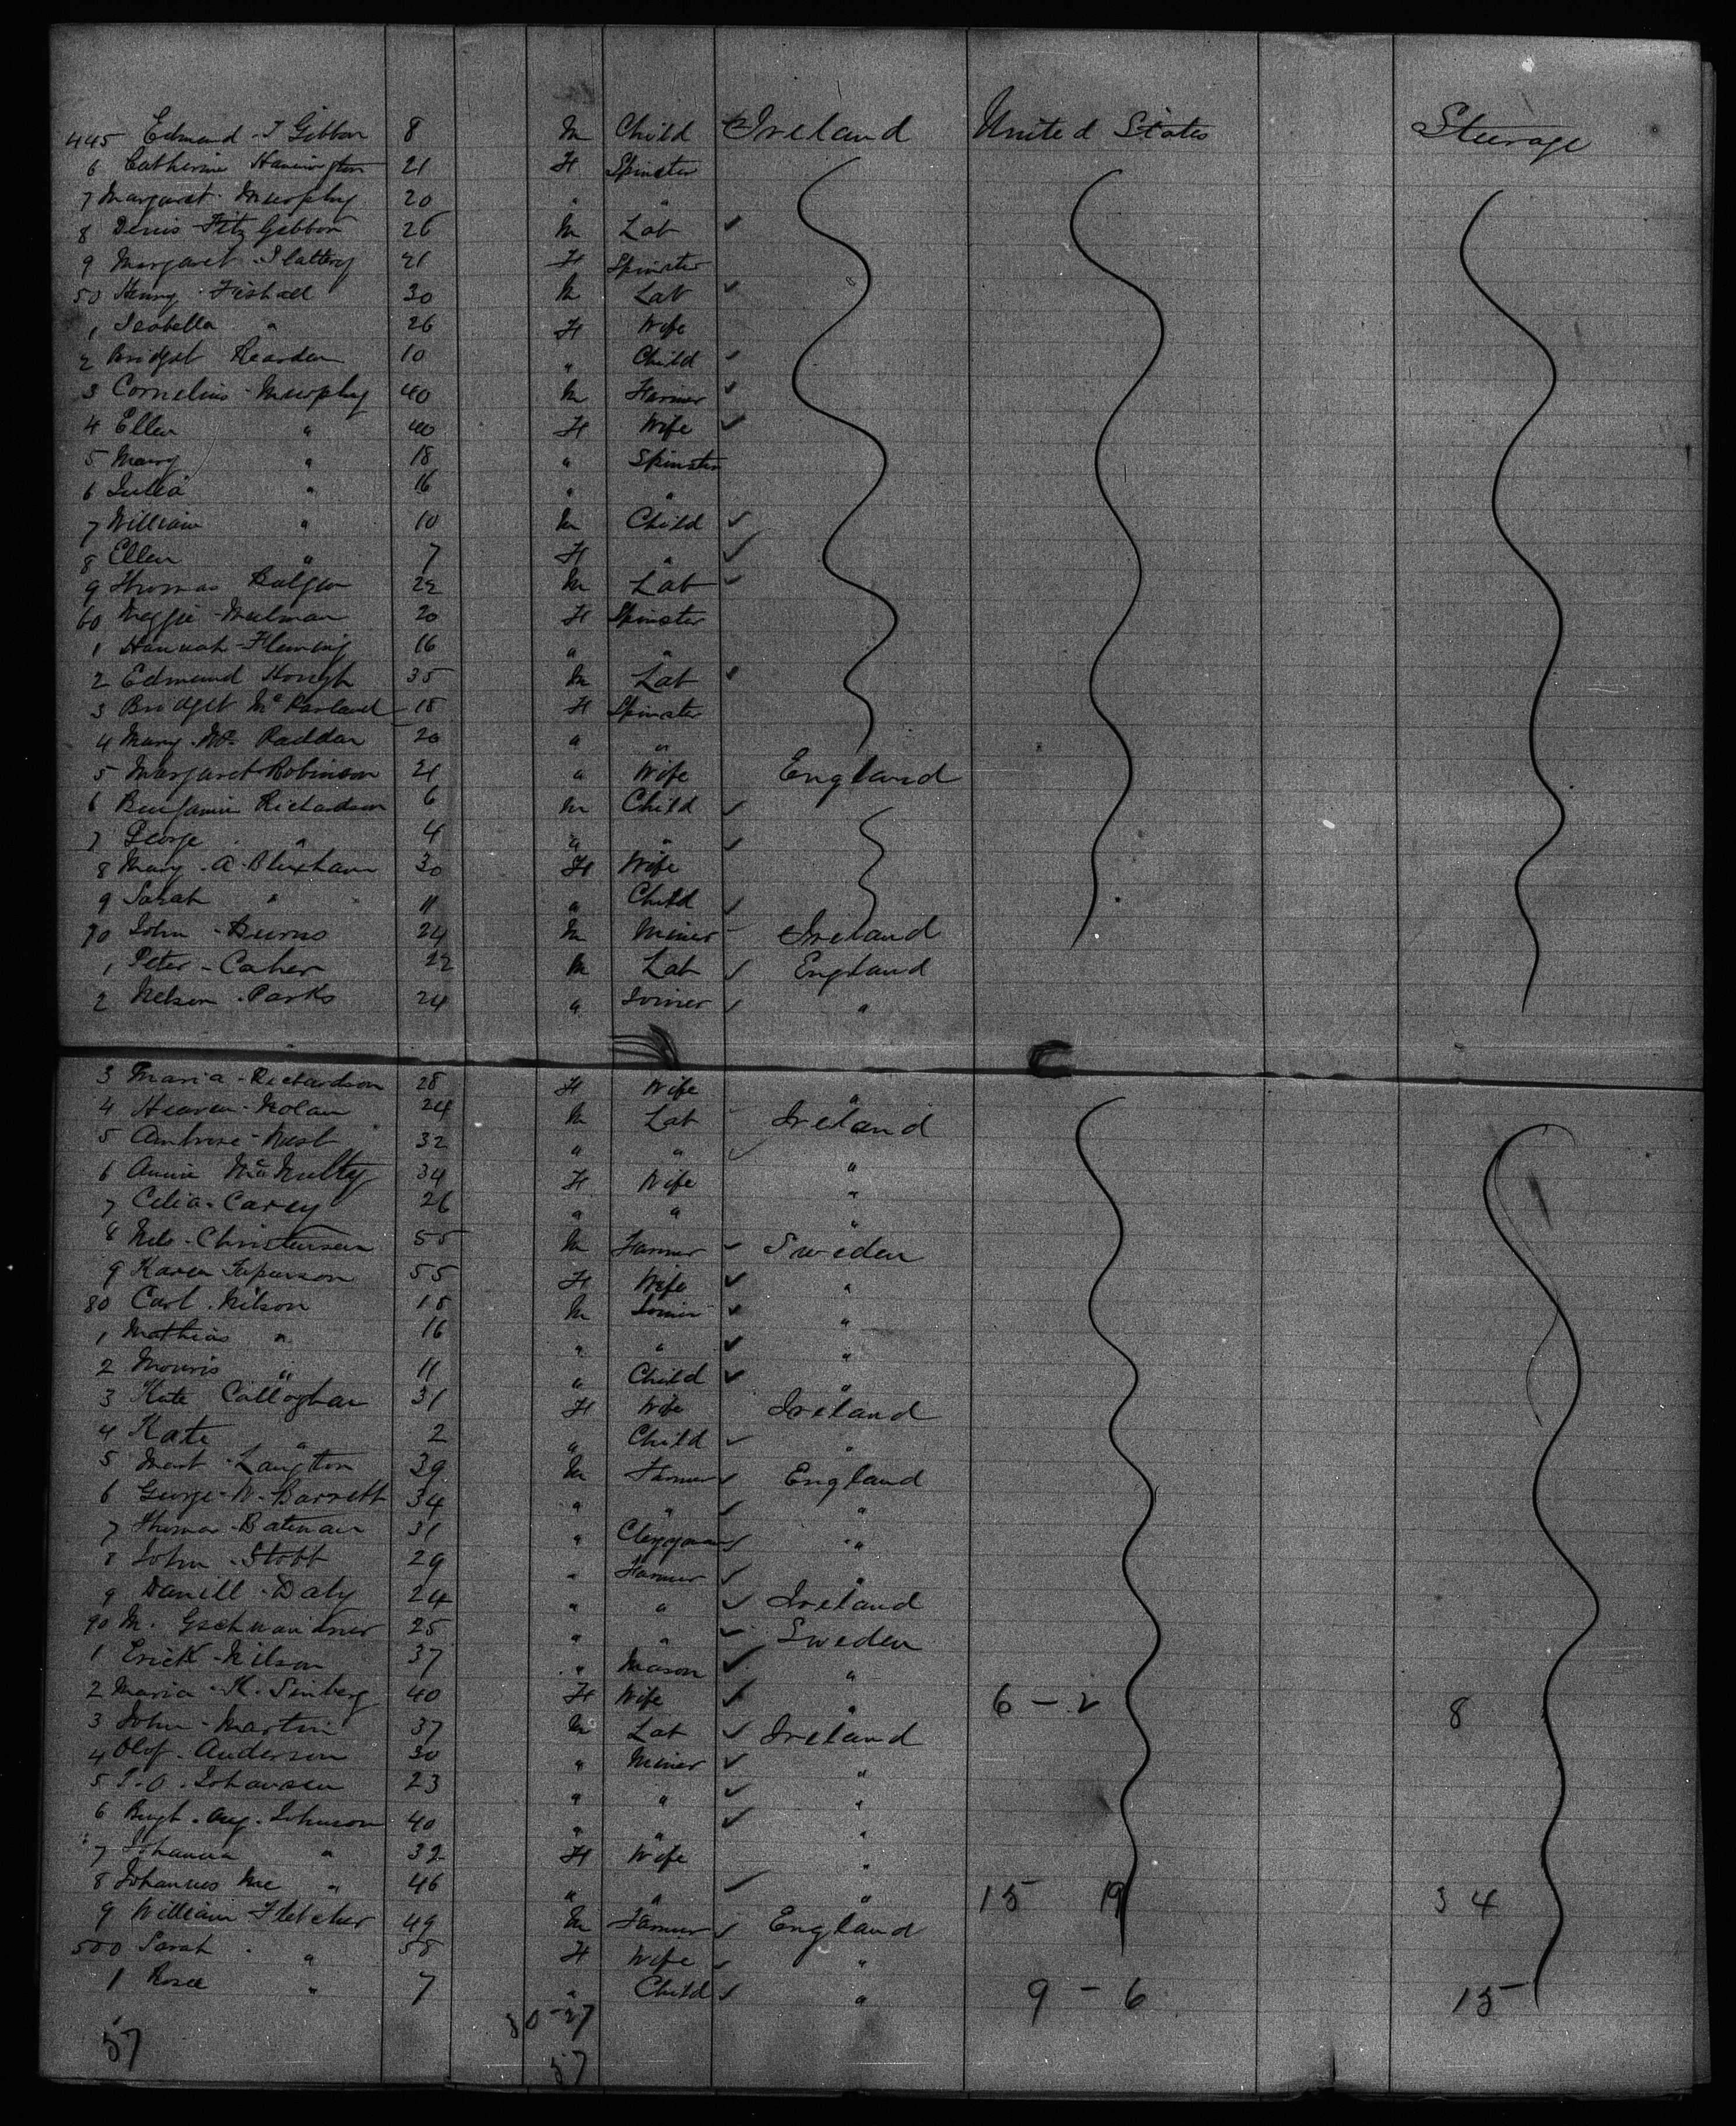 445 Edmund J Gibbon 8 M Child Ireland United States Steerage
6 Catherine Hannington 21 F Spinster
7 Margaret Murphy 20 " "
8 Denis Fitz Gibbon 26 M Lab ✓
9 Margaret Slattery 21 F Spinster
50 Henry 30 M Lab ✓
1 Isabella " 26 F Wife
2 Bridget Rearden 10 " Child ✓
3 Cornelius Murphy 40 M Farmer ✓
4 Ellen " 40 F Wife ✓
5 Mary " 18 " Spinster
6 Julia " 16 " "
7 William " 10 M Child ✓
8 Ellen " 7 F " ✓
9 Thomas 22 M Lab ✓
60 Meggie 20 F Spinster
1 Hannah Fleming 16 " "
2 Edmund Hough 35 M Lab ✓
3 Bridget Mc Parland 18 F Spinster
4 Mary Mc Faddan 20 " "
5 Margaret Robinson 21 " Wife England
6 Benjamin Richardson 6 M Child ✓
7 George " 4 " " ✓
8 Mary A Bluxham 30 F Wife
9 Sarah " 11 " Child ✓
70 John Burns 24 M Miner Ireland
1 Peter Caher 22 M Lab ✓ England
2 Nelson Parks 24 " Joiner ✓ "
3 Maria Richardson 28 F Wife "
4 Nolan 24 M Lab Ireland
5 Ambrose West 32 " " ✓ "
6 Annie McNulty 34 F Wife "
7 Celia Carey 26 " " "
8 Nels Christensen 55 M Farmer ✓ Sweden
9 Karen 55 F Wife ✓ "
80 Carl Nilson 18 M Joiner ✓ "
1 Mathias " 16 " " ✓ "
2 Mouris " 11 " Child ✓ "
3 Kate Callaghan 31 F Wife Ireland
4 Kate " 2 " Child ✓ "
5 Langton 39 M Farmer ✓ England
6 George W. Barrett 34 " " ✓ "
7 Thomas Bateman 31 " Clergyman ✓ "
8 John Stott 29 " Farmer ✓ "
9 Daniell Daly 24 " " ✓ Ireland
90 M. Gschwandner 25 " " ✓ Sweden
1 Erick Nilson 37 " Mason ✓ "
2 Maria K. Sinberg 40 F Wife ✓ " 6 - 2 8
3 John Martin 37 M Lab ✓ Ireland
4 Olof Anderson 30 " Miner ✓ "
5 P. O. Johansen 23 " " ✓ "
6 Aug. Johnson 40 " " ✓ "
7 Johanna " 32 F Wife "
8 Johannes " 46 " " ✓ " 15 19 34
9 William Fletcher 49 M Farmer ✓ England
500 Sarah " 58 F Wife ✓ "
1 Rose " 7 " Child ✓ " 9 - 6 15
30 - 27
57 57